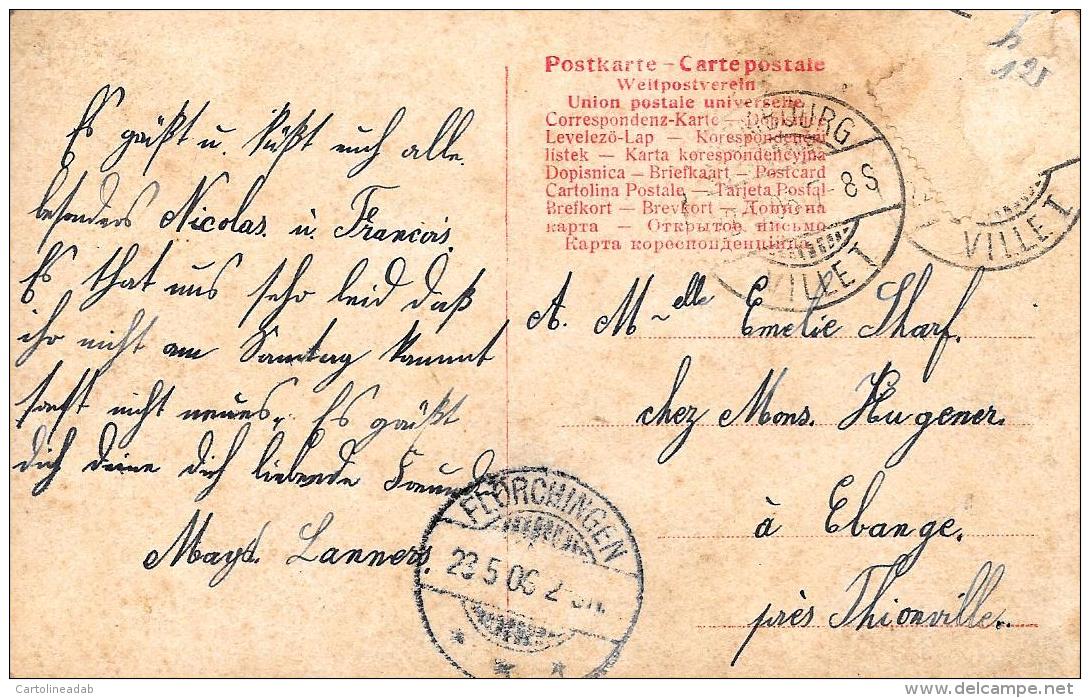 Es grüßt u. küßt euch alle.
besonders Nicolas. u. Francois.
Es that uns sehr leid daß
ihr nicht am Samstag kammt
sonst nicht neues. Es grüßt
dich deine dich liebende Freund
Magd. Lanners.
Postkarte – Carte postale
Weltpostverein
Union postale universelle
Correspondenz-Karte –
Levelező-Lap – Korespondenční
listek – Karta korespondencyjna
Dopisnica – Briefkaart – Postcard
Cartolina Postale – Tarjeta Postal
Brefkort – Brevkort – Дописна
карта – Открытое письмо
Карта кореспонденційна
8S
VILLE 1
VILLE 1
A. Melle Emelie Sharf.
chez Mons. Hugener.
à Ebange.
près Thionville.
FLÖRCHINGEN
23 5 06 2-3N.
Cartolineadab
www.delcampe.net